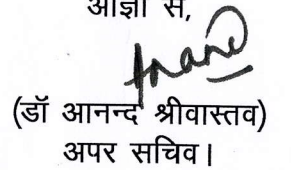 आज्ञा से,
Anand
(डॉ आनन्द श्रीवास्तव)
अपर सचिव।